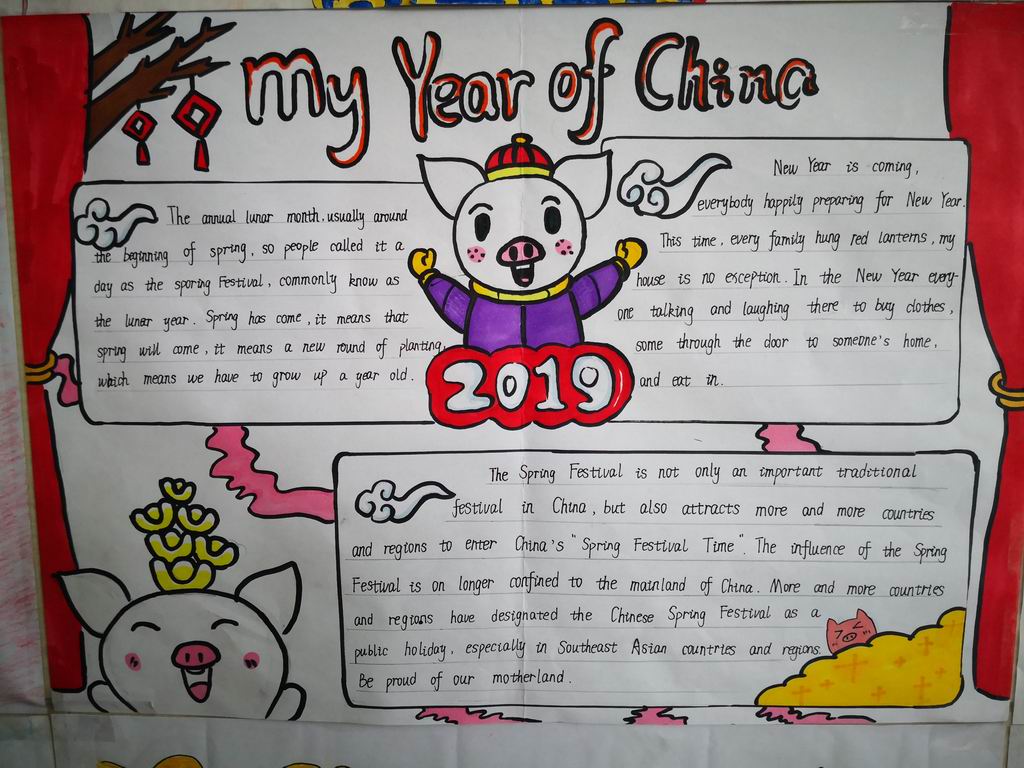 My Year of China
The annual lunar month, usually around
the beginning of spring, so people called it a
day as the sporing Festival, commonly know as
the lunar year. Spring has come, it means that
spring will come, it means a new round of planting,
which means we have to grow up a year old.
2019
New Year is coming,
everybody happily preparing for New Year.
This time, every family hung red lanterns, my
house is no exception. In the New Year every-
one talking and laughing there to buy clothes,
some through the door to someone's home,
and eat in.
The Spring Festival is not only an important traditional
festival in China, but also attracts more and more countries
and regions to enter China's "Spring Festival Time". The influence of the Spring
Festival is on longer confined to the mainland of China. More and more countries
and regions have designated the Chinese Spring Festival as a
public holiday, especially in Southeast Asian countries and regions.
Be proud of our motherland.